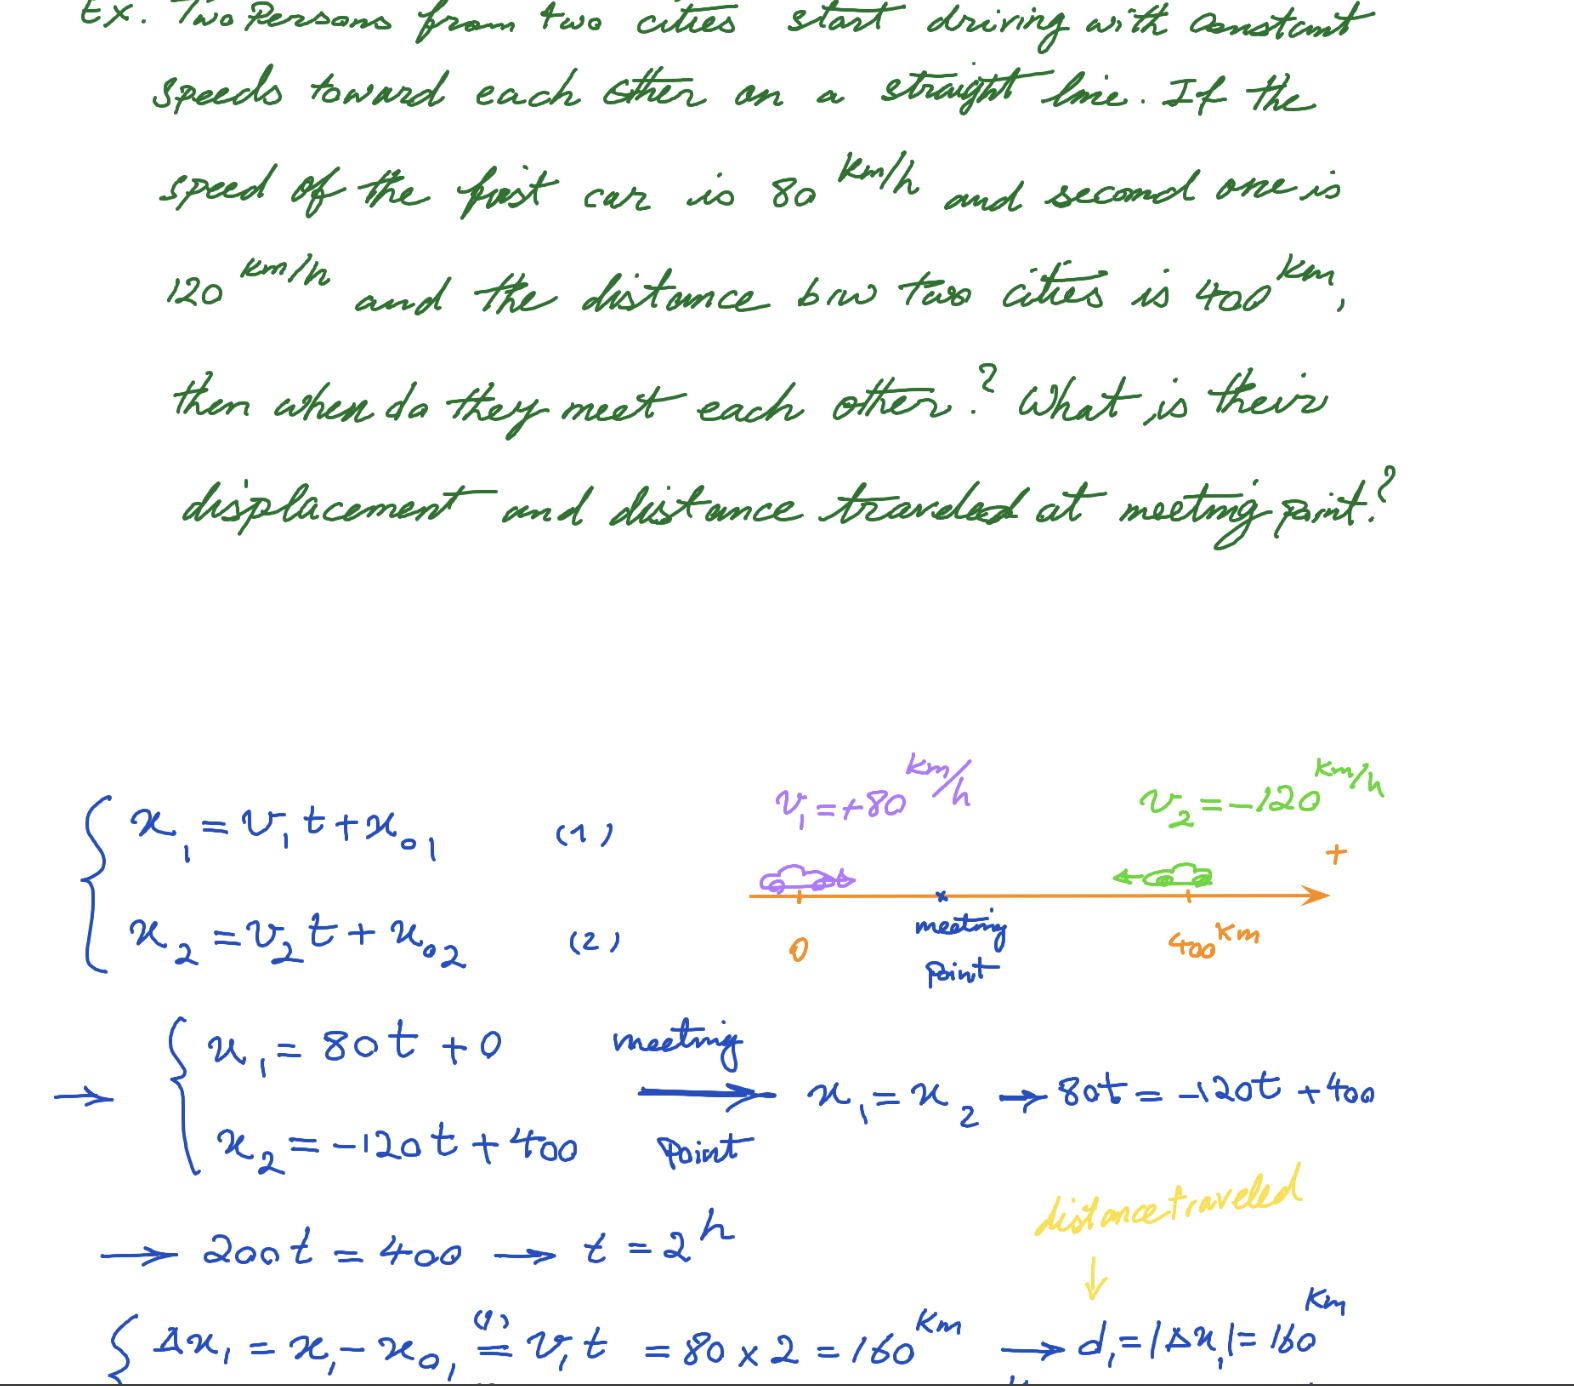 Ex. Two Persons from two cities start driving with constant
speeds toward each other on a straight line. If the
speed of the first car is 80 km/h and second one is
120 km/h and the distance b/w two cities is 400 km,
then when do they meet each other? What is their
displacement and distance traveled at meeting point?
v₁ = +80 km/h
v₂ = -120 km/h
+
x₁ = v₁t + x₀₁ (1)
x₂ = v₂t + x₀₂ (2)
0
meeting
point
400 km
→ x₁ = 80t + 0
x₂ = -120t + 400
meeting
point
x₁ = x₂ → 80t = -120t + 400
→ 200t = 400 → t = 2 h
distance traveled
↓
Δx₁ = x₁ - x₀₁ (1)= v₁t = 80 × 2 = 160 km → d₁ = |Δx₁| = 160 km